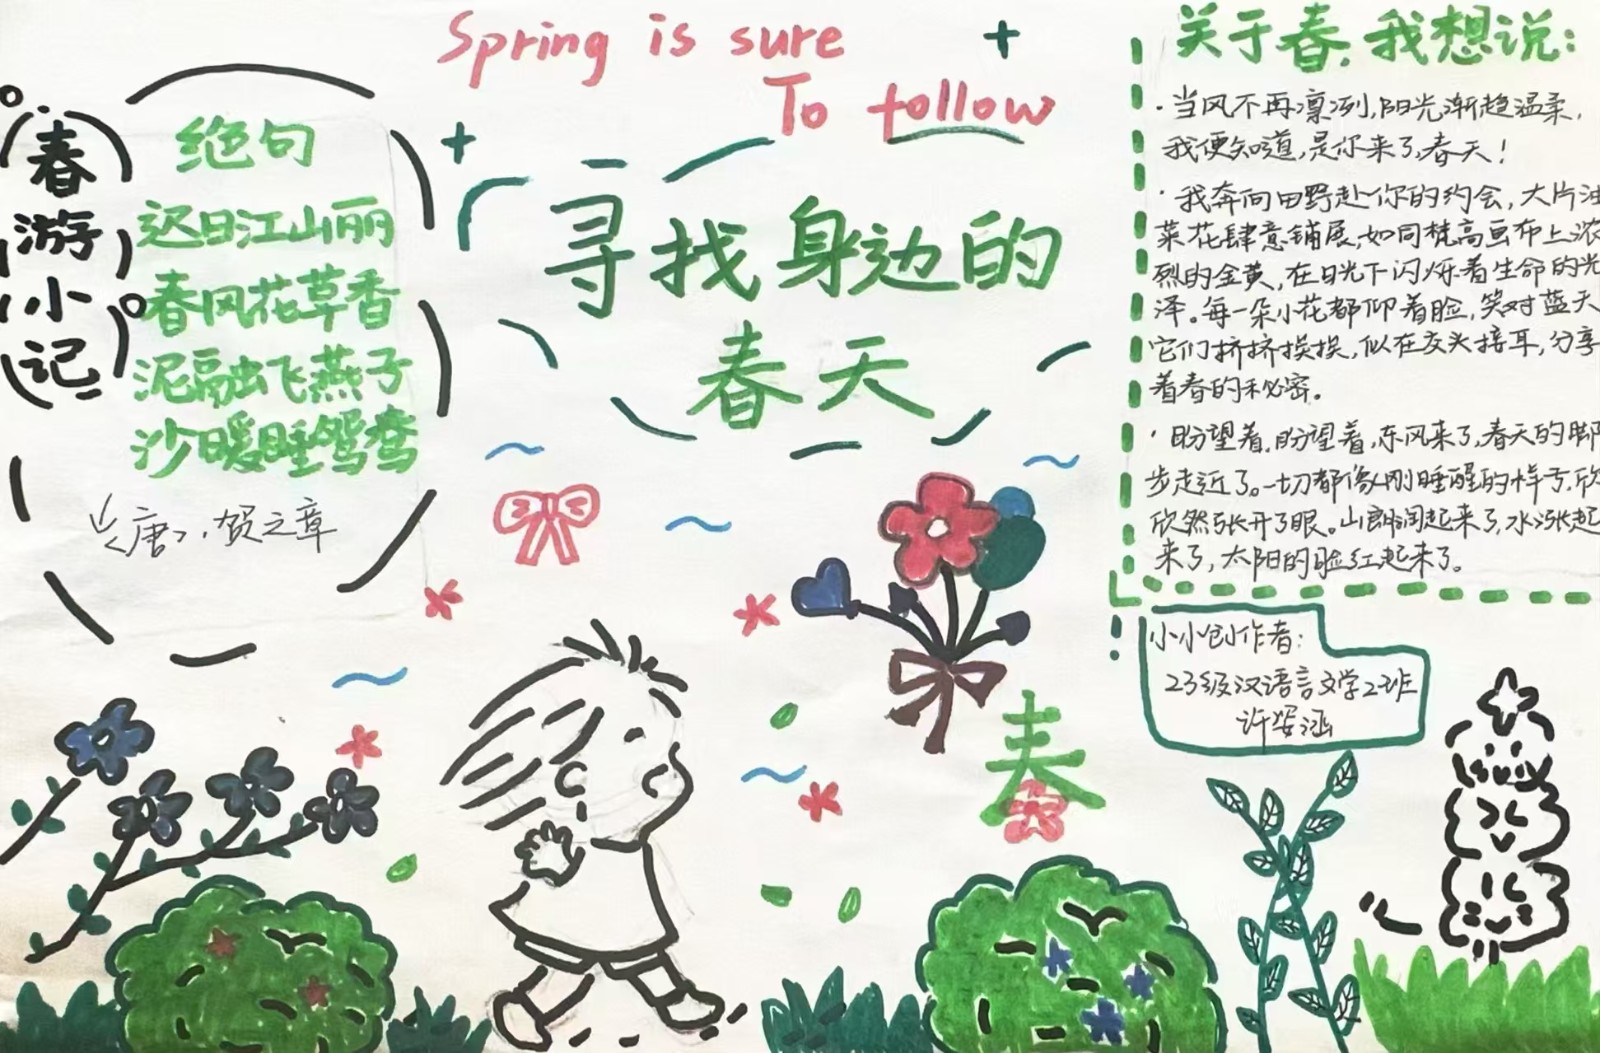 Spring is sure
To follow
春游小记
绝句
迟日江山丽
春风花草香
泥融飞燕子
沙暖睡鸳鸯
<唐>·贺之章
寻找身边的
春天
春
关于春,我想说:
·当风不再凛冽,阳光渐趋温柔,
我便知道,是你来了,春天!
·我奔向田野赴你的约会,大片油
菜花肆意铺展,如同梵高画布上浓
烈的金黄,在日光下闪烁着生命的光
泽。每一朵小花都仰着脸,笑对蓝天
它们挤挤挨挨,似在交头接耳,分享
着春的秘密。
·盼望着,盼望着,东风来了,春天的脚
步走近了。一切都像刚睡醒的样子,欣
欣然张开了眼。山朗润起来了,水涨起
来了,太阳的脸红起来了。
小小创作者:
23级汉语言文学2班
许安涵